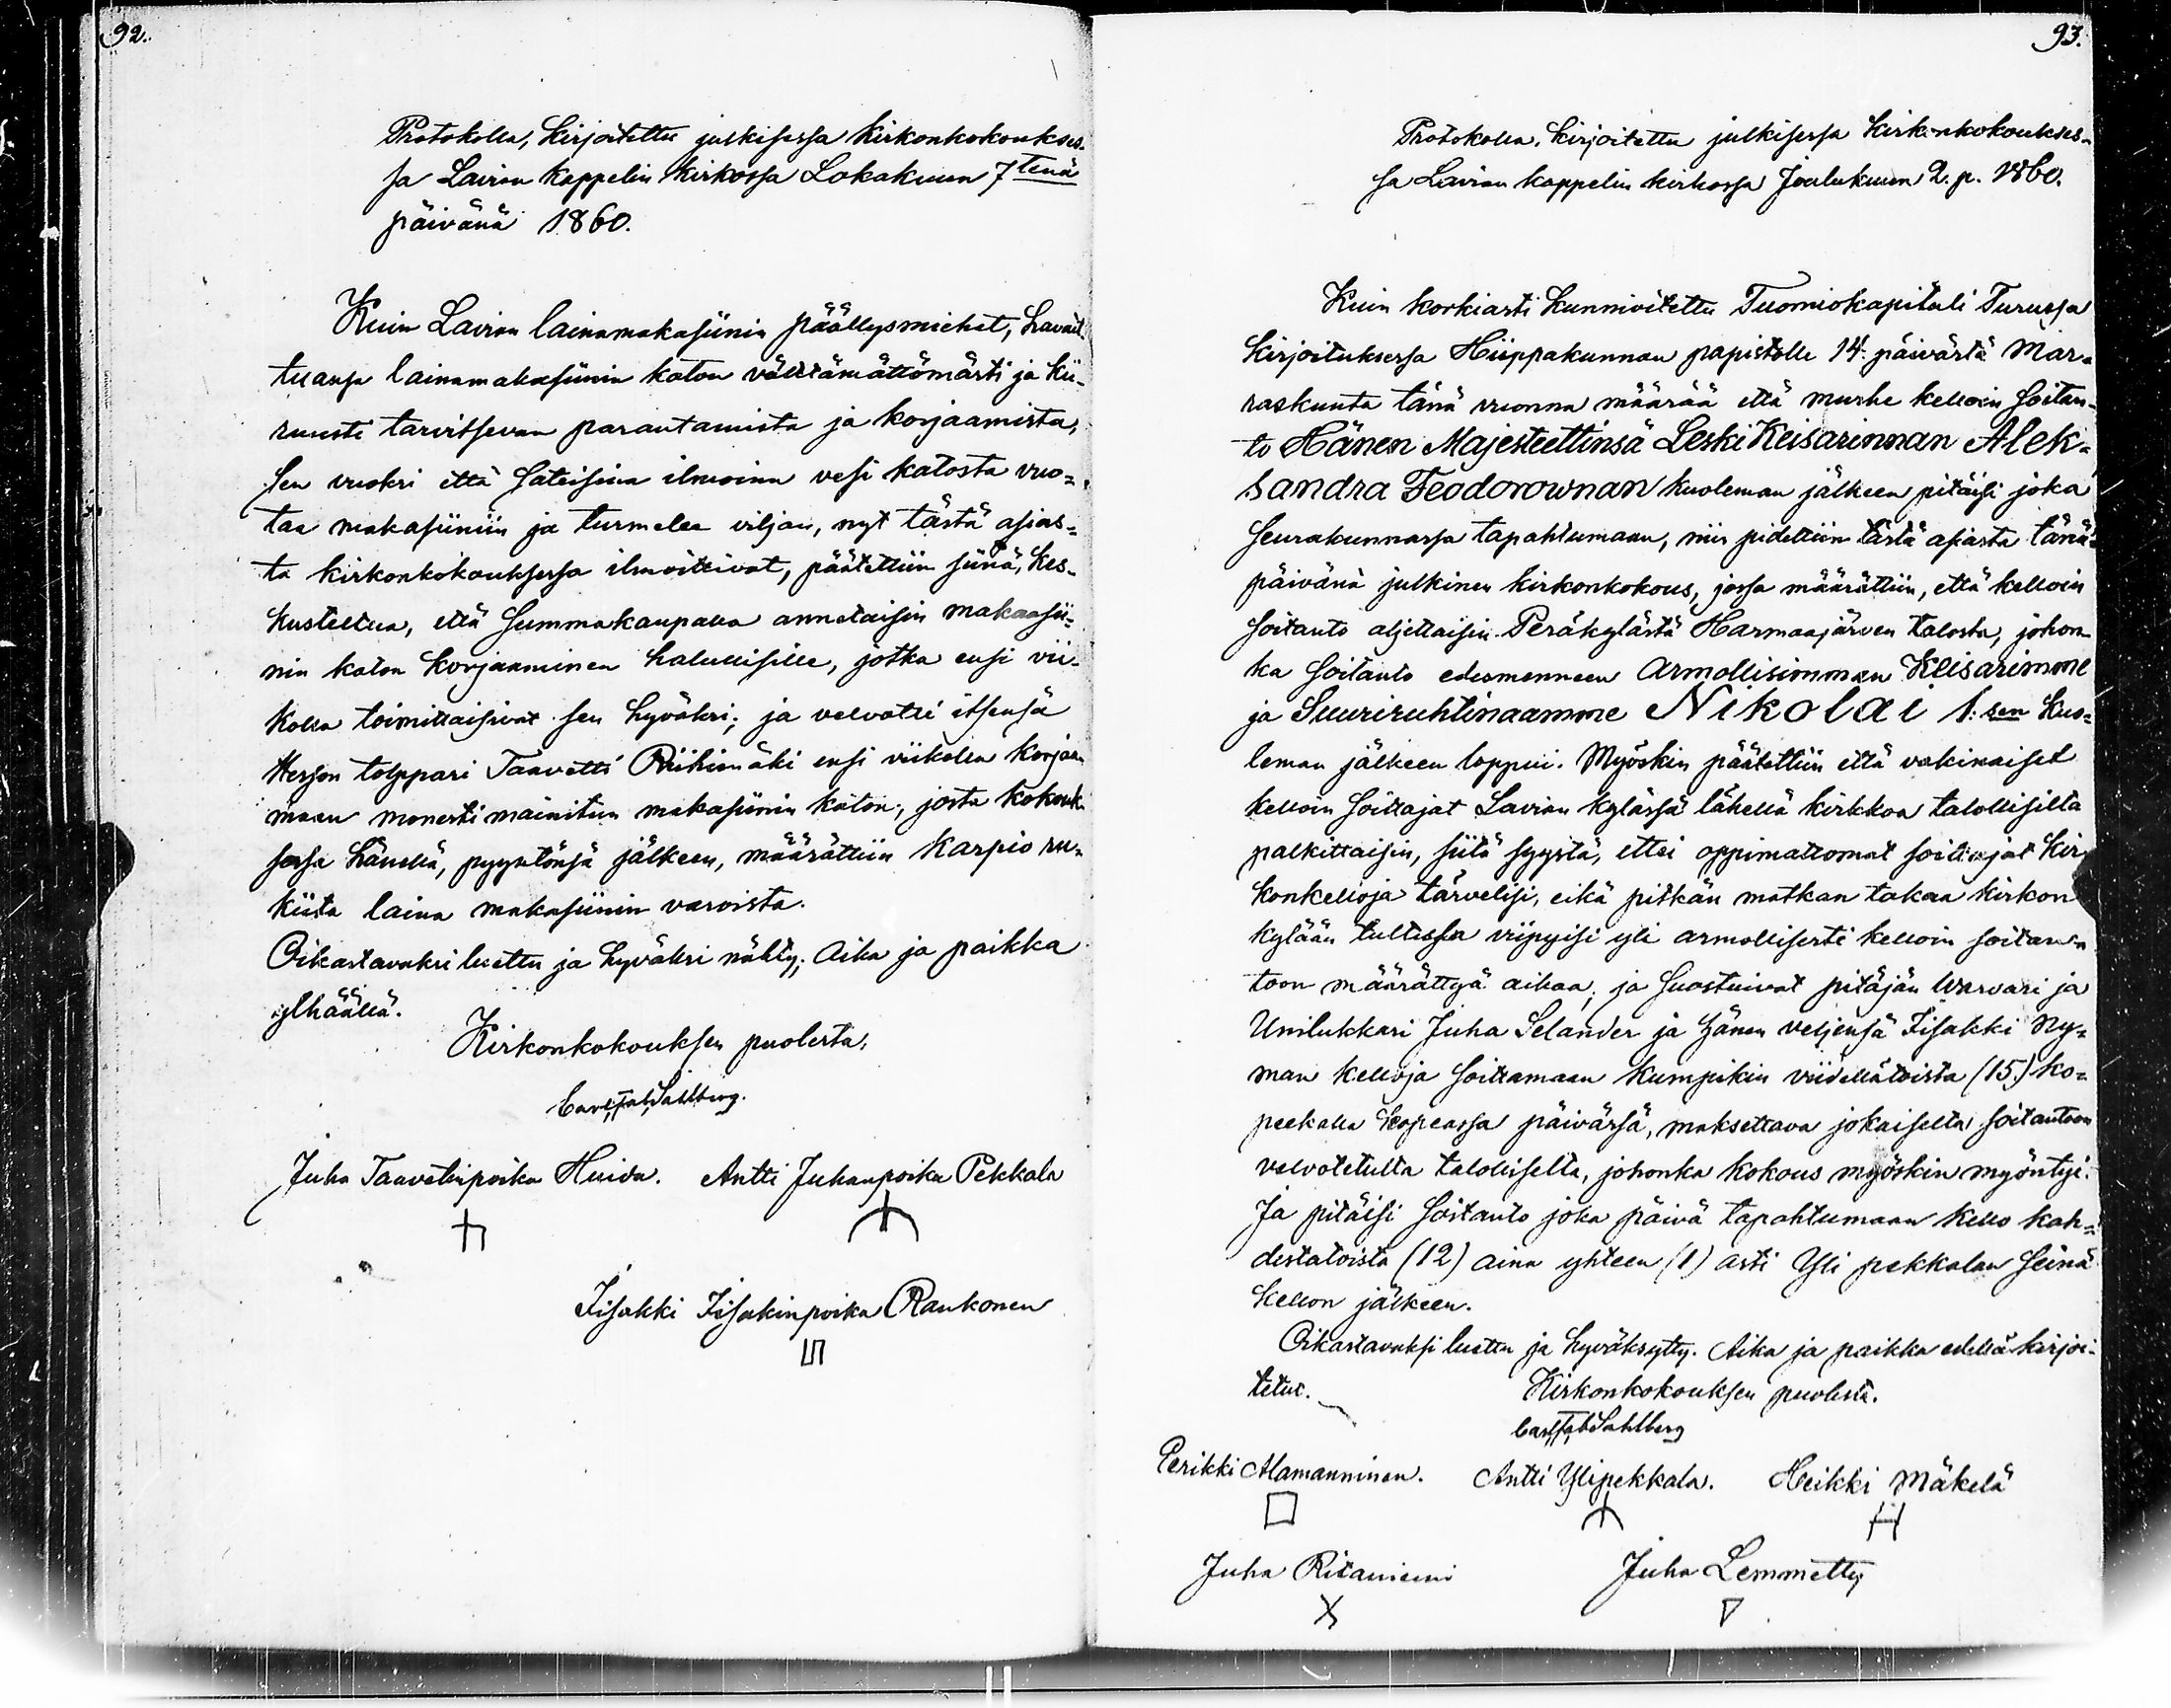 92.
Protokolla, kirjoitettu julkisessa kirkonkokoukses-
sa Lavian kappelin kirkossa Lokakuun 7tenä
päivänä 1860.
Kuin Lavian lainamakasiinin päällysmiehet, havait-
tuansa lainamakasiinin katon välttämättömästi ja kii-
ruusti tarvitsevan parantamista ja korjaamista,
sen vuoksi että sateisina ilmoina vesi katosta vuo-
taa makasiiniin ja turmelee viljan, nyt tästä asias-
ta kirkonkokouksessa ilmoittivat, päätettiin siinä, kes-
kusteltua, että summakaupalla annetaisin makaasii-
nin katon korjaaminen halullisille, jotka ensi vii-
kolla toimittaisivat sen hyväksi; ja velvotti itsensä
Herson tolppari Taavetti Riihimäki ensi viikolla korjaa-
maan monesti mainitun makasiinin katon, josta kokouk-
sessa hänellä, pyyntönsä jälkeen, määrättiin karpio ru-
kiita laina makasiinin varoista.
Oikastavaksi luettu ja hyväksi nähty; Aika ja paikka
ylhäällä.
Kirkonkokouksen puolesta,
Carl Jab. Sahlberg.
Juha Taavetinpoika Huida. Antti Juhanpoika Pekkala
Iisakki Iisakinpoika Raukonen
93.
Protokolla, kirjoitettu julkisessa kirkonkokoukses-
sa Lavian kappelin kirkossa Joulukuun 2. p. 1860.
Kuin korkiasti kunnioitettu Tuomiokapituli Turussa
kirjoituksessa Hiippakunnan papistolle 14. päivästä Mar-
raskuuta tänä vuonna määrää että murhe kelloin soitan-
to Hänen Majesteettinsä Leski Keisarinnan Alek-
sandra Feodorownan kuoleman jälkeen pitäisi joka
seurakunnassa tapahtumaan, niin pidettiin tästä asiasta tänä
päivänä julkinen kirkonkokous, jossa määrättiin, että kelloin
soitanto aljettaisin Peräkylästä Harmaajärven talosta, johon-
ka soitanto edesmenneen Armollisimman Keisarimme
ja Suuriruhtinaamme Nikolai 1:sen kuo-
leman jälkeen loppui. Myöskin päätettiin että vakinaiset
kelloin soittajat Lavian kylässä lähellä kirkkoa talollisilta
palkittaisin, siitä syystä, ettei oppimattomat soittajat kir-
konkelloja tärvelisi, eikä pitkän matkan takaa kirkon
kylään tultissa viipyisi yli armollisesti kelloin soitan-
toon määrättyä aikaa; ja suostuivat pitäjän Warvari ja
Unilukkari Juha Selander ja hänen veljensä Iisakki Ny-
man kelloja soittamaan kumpikin viidellätoista (15.) ko-
peekalla hopeassa päivässä, maksettava jokaiselta soitantoon
velvotetulta talolliselta, johonka kokous myöskin myöntyi.
Ja pitäisi soitanto joka päivä tapahtumaan kello kah-
destatoista (12) aina yhteen (1) asti Yli pekkalan seinä
kellon jälkeen.
Oikastavaksi luettu ja hyväksytty. Aika ja paikka edellä kirjoi-
tetut.
Kirkonkokouksen puolesta.
Carl Jab Sahlberg
Perikki Alamanninen. Antti Ylipekkala. Heikki Mäkelä
Juha Ritaniemi Juha Lemmetty